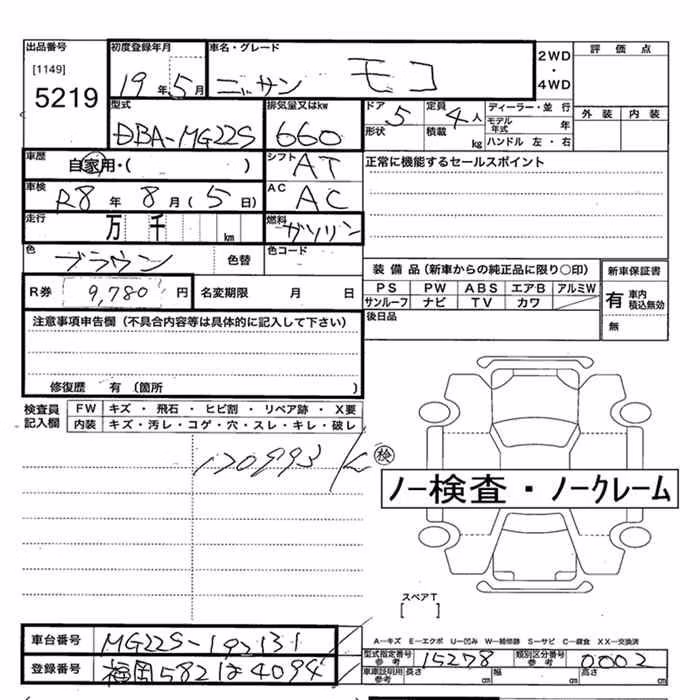 出品番号 初度登録年月 車名・グレード 評価点
[1149] 5219 19年5月 ニッサン モコ 2WD・4WD
外装 内装
型式 排気量又はkw ドア 5 定員 4人 ディーラー・並行
DBA-MG22S 660 形状 積載 kg モデル年式 年
ハンドル 左・右
車歴 自家用・( ) シフト AT 正常に機能するセールスポイント
車検 R8年8月(5日) AC AC
走行 万 千 km 燃料 ガソリン
色 ブラウン 色替 色コード
装備品(新車からの純正品に限り○印) 新車保証書
R券 9,780円 名変期限 月 日 PS PW ABS エアB アルミW 有 車内 積込無効
サンルーフ ナビ TV カワ
注意事項申告欄(不具合内容等は具体的に記入して下さい) 後日品 無
修復歴 有(箇所 )
検査員記入欄 FW キズ・飛石・ヒビ割・リペア跡・X要
内装 キズ・汚レ・コゲ・穴・スレ・キレ・破レ
120993 検
ノー検査・ノークレーム
スペアT
[ ]
A―キズ E―エクボ U―凹み W―補修跡 S―サビ C―腐食 XX―交換済
車台番号 MG22S-192131 型式指定番号 参考 15278 類別区分番号 参考 0002
登録番号 福岡582は4094 車庫証明用 参考 長さ cm 幅 cm 高さ cm